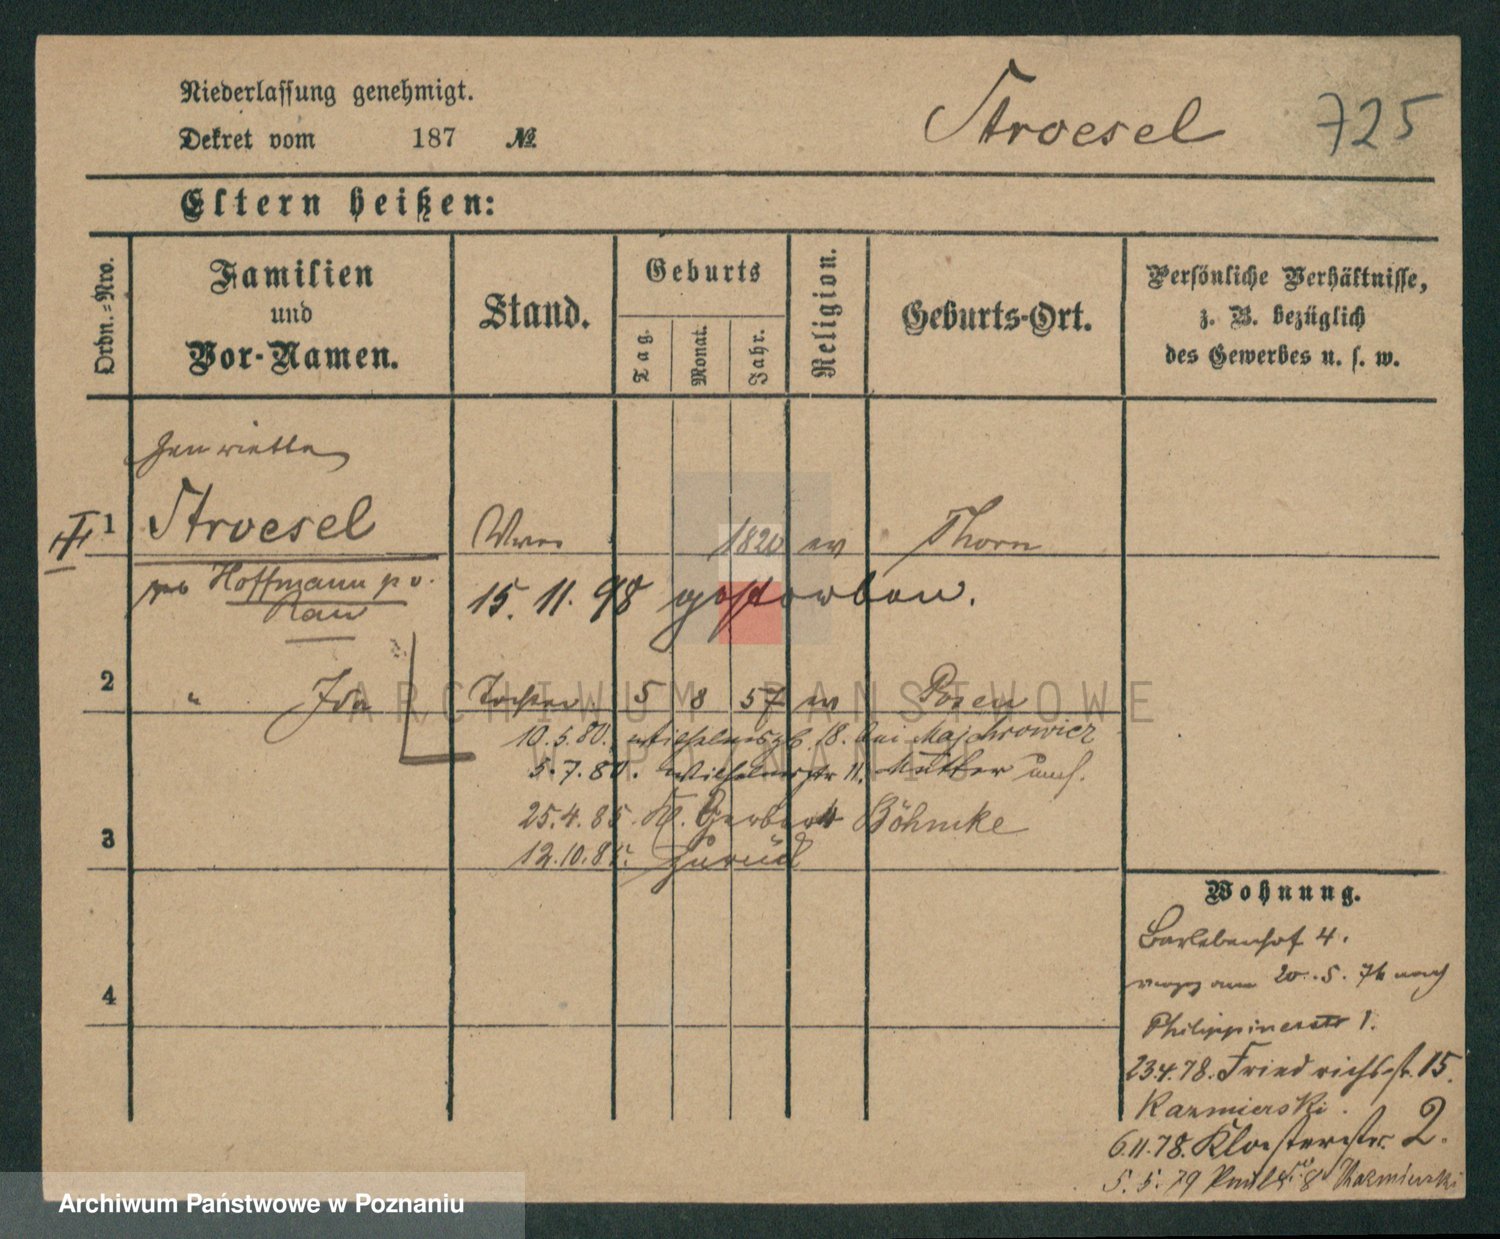 Niederlassung genehmigt.
Dekret vom 187 №
Stroesel 725
Eltern heißen:
Ordn.-Nro.
Familien
und
Vor-Namen.
Stand.
Geburts
Tag.
Monat.
Jahr.
Religion.
Geburts-Ort.
Persönliche Verhältnisse,
z. B. bezüglich
des Gewerbes u. s. w.
Henriette
1 Stroesel Wwe 1820 ev Thorn
geb Hoffmann p v.
Rau
15. 11. 98 gestorben.
2 " Ida Tochter 5 8 57 ev Posen
10.5.80. Wilhelmspl. 18. bei Majchrowicz
5.7.80. Wilhelmstr 11. Mutter
25.4.85 Gr. Gerberstr Böhmke
3
12.10.85. zurück
4
Wohnung.
Barlebenshof 4.
verzg am 20.5.76 nach
Philippinerstr 1.
23.4.78. Friedrichsstr. 15.
Kazmierski.
6.11.78. Klosterstr. 2.
5.5.79 8 Kazmierski
ARCHIWUM PAŃSTWOWE
W POZNANIU
Archiwum Państwowe w Poznaniu